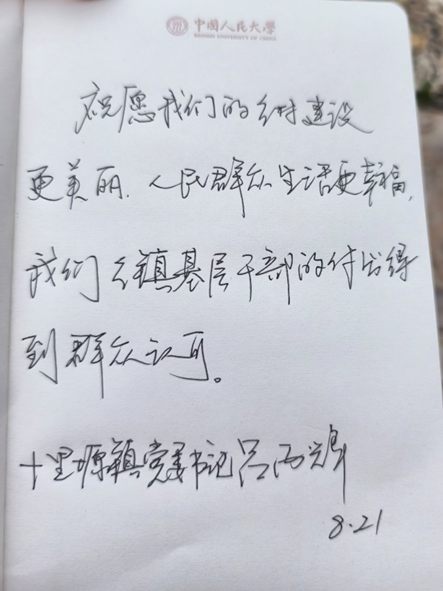 中国人民大学
RENMIN UNIVERSITY OF CHINA
祝愿我们的乡村建设
更美丽，人民群众生活更幸福，
我们乡镇基层干部的付出得
到群众认可。
十里塬镇党委书记吕
8.21